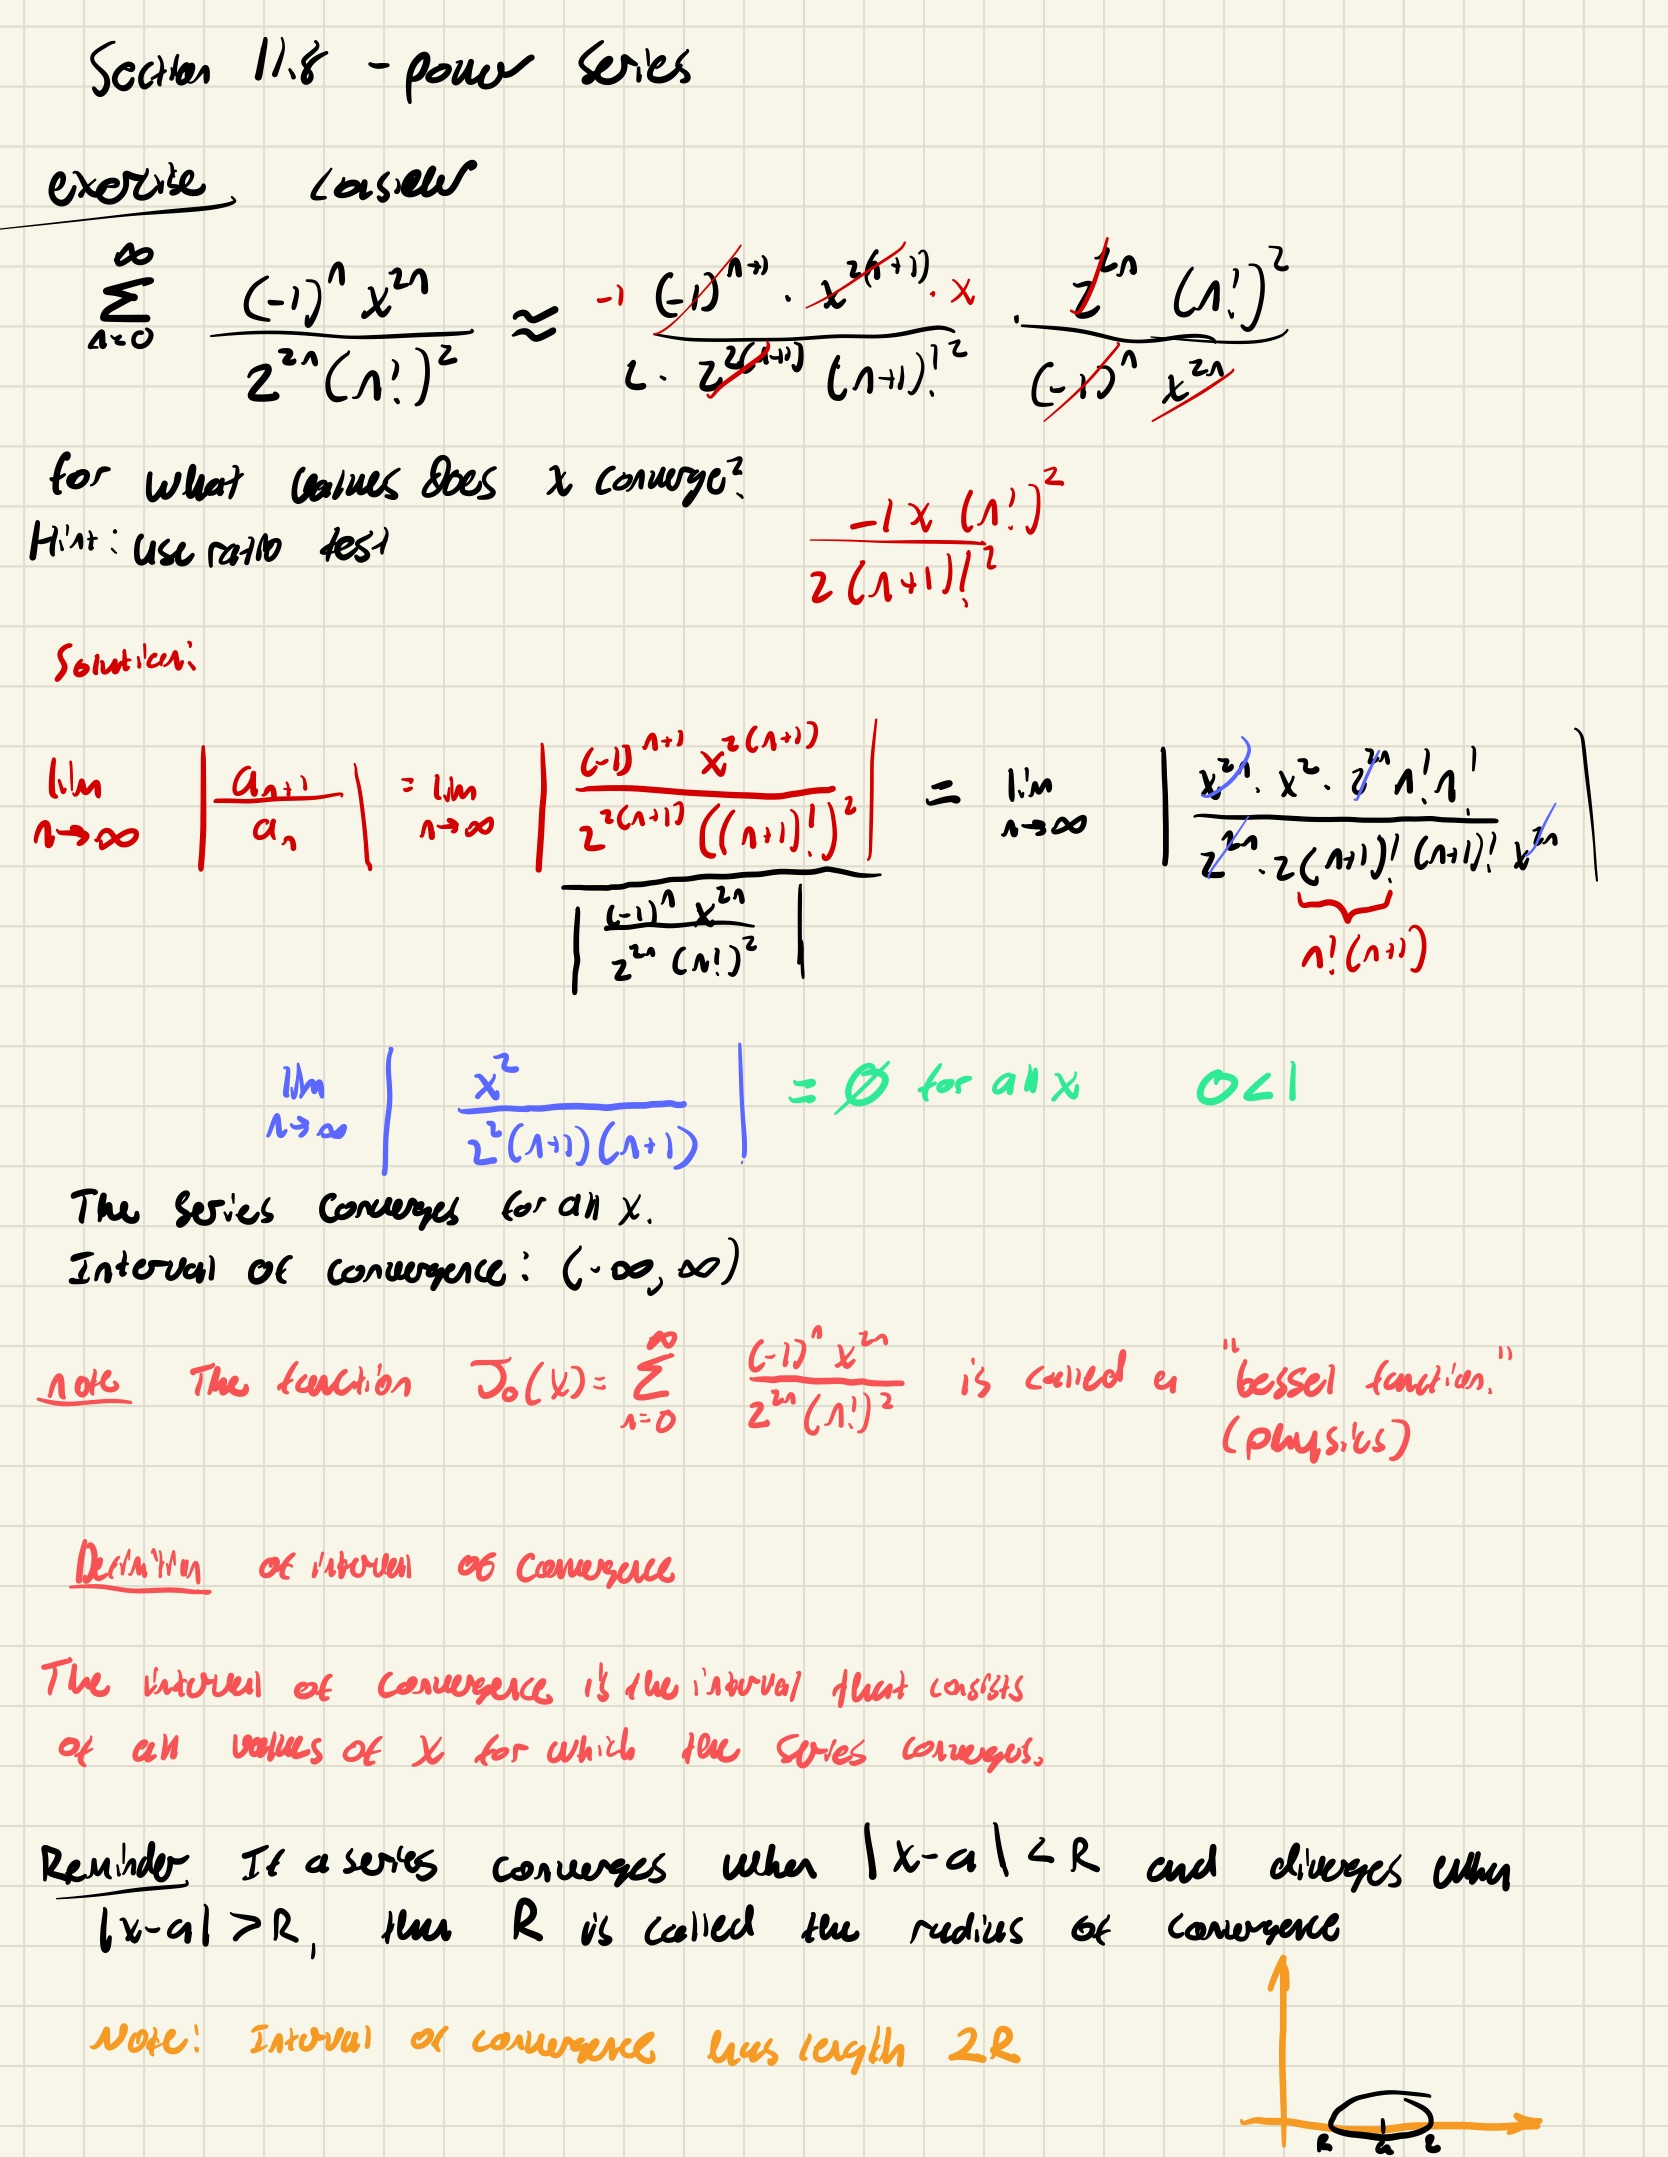 Section 11.8 - power series
exercise consider
∞ Σ n=0 (-1)^n x^{2n} / 2^{2n}(n!)^2 ≈ -1 (-1)^{n+1} · x^{2(n+1)} · x / 2 · 2^{2(n+1)} (n+1)!^2 · 2^{2n} (n!)^2 / (-1)^n x^{2n}
for what values does x converge?
Hint: use ratio test
-1 x (n!)^2 / 2 (n+1)!^2
Solution:
lim n→∞ | a_{n+1} / a_n | = lim n→∞ | (-1)^{n+1} x^{2(n+1)} / 2^{2(n+1)} ((n+1)!)^2 | / | (-1)^n x^{2n} / 2^{2n} (n!)^2 | = lim n→∞ | x^{2n} · x^2 · 2^{2n} n! n! / 2^{2n} · 2 (n+1)! (n+1)! x^{2n} |
n! (n+1)
lim n→∞ | x^2 / 2^2 (n+1)(n+1) | = 0 for all x 0<1
The series converges for all x.
Interval of convergence: (-∞, ∞)
note The function J_0(x) = ∞ Σ n=0 (-1)^n x^{2n} / 2^{2n} (n!)^2 is called a "bessel function."
(physics)
Definition of interval of convergence
The interval of convergence is the interval that consists
of all values of x for which the series converges.
Reminder If a series converges when |x-a| < R and diverges when
|x-a| > R, then R is called the radius of convergence
Note: Interval of convergence has length 2R
R a R